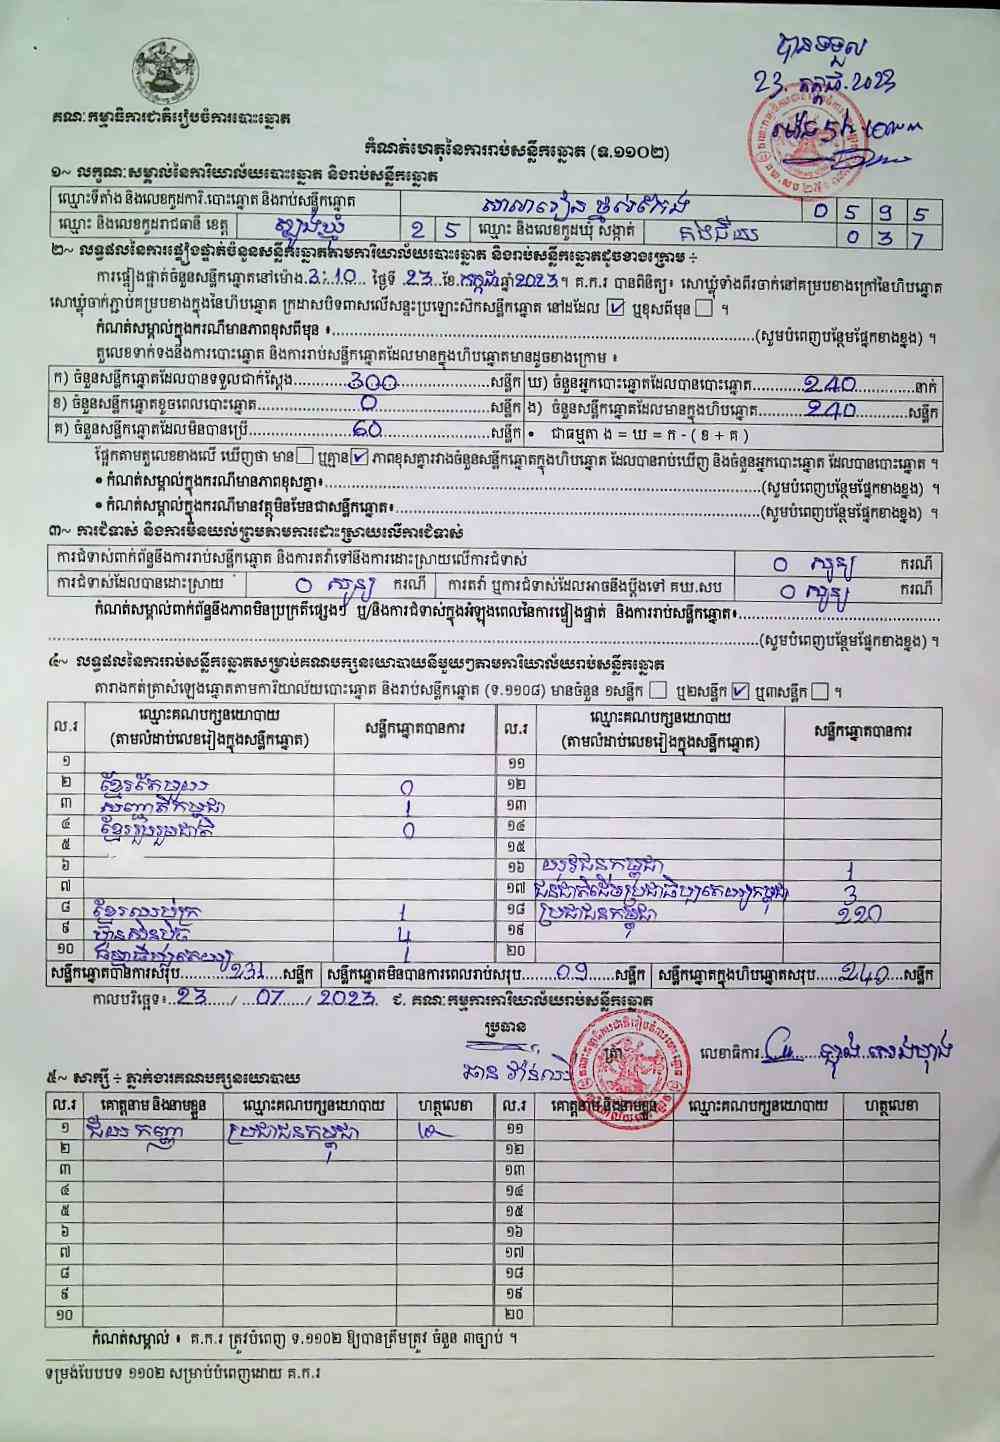 បានទទួល
23. កក្កដា. 2023
ម៉ោង 5h 10
គណៈកម្មាធិការជាតិរៀបចំការបោះឆ្នោត
កំណត់ហេតុនៃការរាប់សន្លឹកឆ្នោត (ទ.១១០២)
១~ លក្ខណៈសម្គាល់នៃការិយាល័យបោះឆ្នោត និងរាប់សន្លឹកឆ្នោត
ឈ្មោះទីតាំង និងលេខកូដការិ.បោះឆ្នោត និងរាប់សន្លឹកឆ្នោត សាលារៀន 0 5 9 5
ឈ្មោះ និងលេខកូដរាជធានី ខេត្ត ត្បូងឃ្មុំ 2 5 ឈ្មោះ និងលេខកូដឃុំ សង្កាត់ គងជ័យ 0 3 7
២~ លទ្ធផលនៃការផ្ទៀងផ្ទាត់ចំនួនសន្លឹកឆ្នោតតាមការិយាល័យបោះឆ្នោត និងរាប់សន្លឹកឆ្នោតដូចខាងក្រោម ÷
ការផ្ទៀងផ្ទាត់ចំនួនសន្លឹកឆ្នោតនៅម៉ោង 3:10 ថ្ងៃទី 23 ខែ កក្កដា ឆ្នាំ 2023 ។ គ.ក.រ បានពិនិត្យ៖ សោឃ្លុំទាំងពីរចាក់នៅគម្របខាងក្រៅនៃហិបឆ្នោត
សោឃ្លុំចាក់ភ្ជាប់គម្របខាងក្នុងនៃហិបឆ្នោត ក្រដាសបិទពាសលើសន្ទះប្រឡោះសិកសន្លឹកឆ្នោត នៅដដែល ☑ ឬខុសពីមុន ☐ ។
កំណត់សម្គាល់ក្នុងករណីមានភាពខុសពីមុន ៖ (សូមបំពេញបន្ថែមផ្នែកខាងខ្នង) ។
តួលេខទាក់ទងនឹងការបោះឆ្នោត និងការរាប់សន្លឹកឆ្នោតដែលមានក្នុងហិបឆ្នោតមានដូចខាងក្រោម ៖
ក) ចំនួនសន្លឹកឆ្នោតដែលបានទទួលជាក់ស្តែង 300 សន្លឹក ឃ) ចំនួនអ្នកបោះឆ្នោតដែលបានបោះឆ្នោត 240 នាក់
ខ) ចំនួនសន្លឹកឆ្នោតខូចពេលបោះឆ្នោត 0 សន្លឹក ង) ចំនួនសន្លឹកឆ្នោតដែលមានក្នុងហិបឆ្នោត 240 សន្លឹក
គ) ចំនួនសន្លឹកឆ្នោតដែលមិនបានប្រើ 60 សន្លឹក • ជាធម្មតា ង = ឃ = ក - ( ខ + គ )
ផ្អែកតាមតួលេខខាងលើ ឃើញថា មាន ☐ ឬគ្មាន ☑ ភាពខុសគ្នារវាងចំនួនសន្លឹកឆ្នោតក្នុងហិបឆ្នោត ដែលបានរាប់ឃើញ និងចំនួនអ្នកបោះឆ្នោត ដែលបានបោះឆ្នោត ។
• កំណត់សម្គាល់ក្នុងករណីមានភាពខុសគ្នា៖ (សូមបំពេញបន្ថែមផ្នែកខាងខ្នង) ។
• កំណត់សម្គាល់ក្នុងករណីមានវត្ថុមិនមែនជាសន្លឹកឆ្នោត៖ (សូមបំពេញបន្ថែមផ្នែកខាងខ្នង) ។
៣~ ការជំទាស់ និងការមិនយល់ព្រមតាមការដោះស្រាយលើការជំទាស់
ការជំទាស់ពាក់ព័ន្ធនឹងការរាប់សន្លឹកឆ្នោត និងការតវ៉ាទៅនឹងការដោះស្រាយលើការជំទាស់ 0 សូន្យ ករណី
ការជំទាស់ដែលបានដោះស្រាយ 0 សូន្យ ករណី ការតវ៉ា ឬការជំទាស់ដែលអាចនឹងប្តឹងទៅ គឃ.សប 0 សូន្យ ករណី
កំណត់សម្គាល់ពាក់ព័ន្ធនឹងភាពមិនប្រក្រតីផ្សេងៗ ឬ/និងការជំទាស់ក្នុងអំឡុងពេលនៃការផ្ទៀងផ្ទាត់ និងការរាប់សន្លឹកឆ្នោត៖
(សូមបំពេញបន្ថែមផ្នែកខាងខ្នង) ។
៤~ លទ្ធផលនៃការរាប់សន្លឹកឆ្នោតសម្រាប់គណបក្សនយោបាយនីមួយៗតាមការិយាល័យរាប់សន្លឹកឆ្នោត
តារាងកត់ត្រាសំឡេងឆ្នោតតាមការិយាល័យបោះឆ្នោត និងរាប់សន្លឹកឆ្នោត (ទ.១១០៨) មានចំនួន ១សន្លឹក ☐ ឬ២សន្លឹក ☑ ឬ៣សន្លឹក ☐ ។
ល.រ ឈ្មោះគណបក្សនយោបាយ (តាមលំដាប់លេខរៀងក្នុងសន្លឹកឆ្នោត) សន្លឹកឆ្នោតបានការ ល.រ ឈ្មោះគណបក្សនយោបាយ (តាមលំដាប់លេខរៀងក្នុងសន្លឹកឆ្នោត) សន្លឹកឆ្នោតបានការ
១ ១១
២ ខ្មែរតែមួយ 0 ១២
៣ សញ្ជាតិកម្ពុជា 1 ១៣
៤ ខ្មែររួបរួមជាតិ 0 ១៤
៥ ១៥
៦ ១៦ យុវជនកម្ពុជា 1
៧ ១៧ ជនជាតិដើមប្រជាធិបតេយ្យកម្ពុជា 3
៨ ខ្មែរឈប់ក្រ 1 ១៨ ប្រជាជនកម្ពុជា 220
៩ ហ៊្វុនស៊ិនប៉ិច 4 ១៩
១០ ធម្មាធិបតេយ្យ 1 ២០
សន្លឹកឆ្នោតបានការសរុប 231 សន្លឹក សន្លឹកឆ្នោតមិនបានការពេលរាប់សរុប 09 សន្លឹក សន្លឹកឆ្នោតក្នុងហិបឆ្នោតសរុប 240 សន្លឹក
កាលបរិច្ឆេទ៖ 23 / 07 / 2023 ៩. គណៈកម្មការការិយាល័យរាប់សន្លឹកឆ្នោត
ប្រធាន ត្រា លេខាធិការ
៥~ សាក្សី ÷ ភ្នាក់ងារគណបក្សនយោបាយ
ល.រ គោត្តនាម និងនាមខ្លួន ឈ្មោះគណបក្សនយោបាយ ហត្ថលេខា ល.រ គោត្តនាម និងនាមខ្លួន ឈ្មោះគណបក្សនយោបាយ ហត្ថលេខា
១ ជ័យ កញ្ញា ប្រជាជនកម្ពុជា ១១
២ ១២
៣ ១៣
៤ ១៤
៥ ១៥
៦ ១៦
៧ ១៧
៨ ១៨
៩ ១៩
១០ ២០
កំណត់សម្គាល់ ៖ គ.ក.រ ត្រូវបំពេញ ទ.១១០២ ឱ្យបានត្រឹមត្រូវ ចំនួន ៣ច្បាប់ ។
ទម្រង់បែបបទ ១១០២ សម្រាប់បំពេញដោយ គ.ក.រ